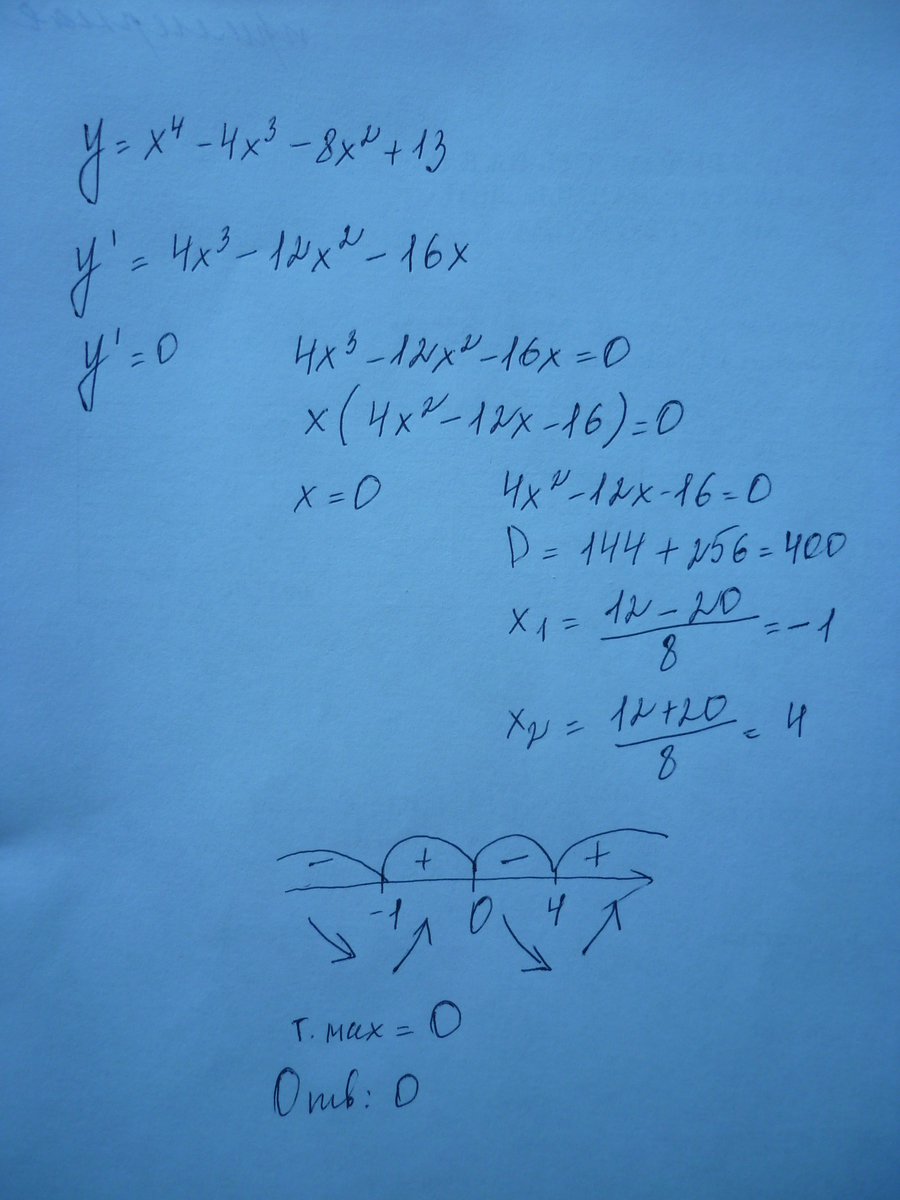 y = x⁴ - 4x³ - 8x² + 13
y' = 4x³ - 12x² - 16x
y' = 0 4x³ - 12x² - 16x = 0
x(4x² - 12x - 16) = 0
x = 0 4x² - 12x - 16 = 0
D = 144 + 256 = 400
x₁ = (12 - 20)/8 = -1
x₂ = (12 + 20)/8 = 4
- + - +
-1 0 4
т. max = 0
Отв: 0